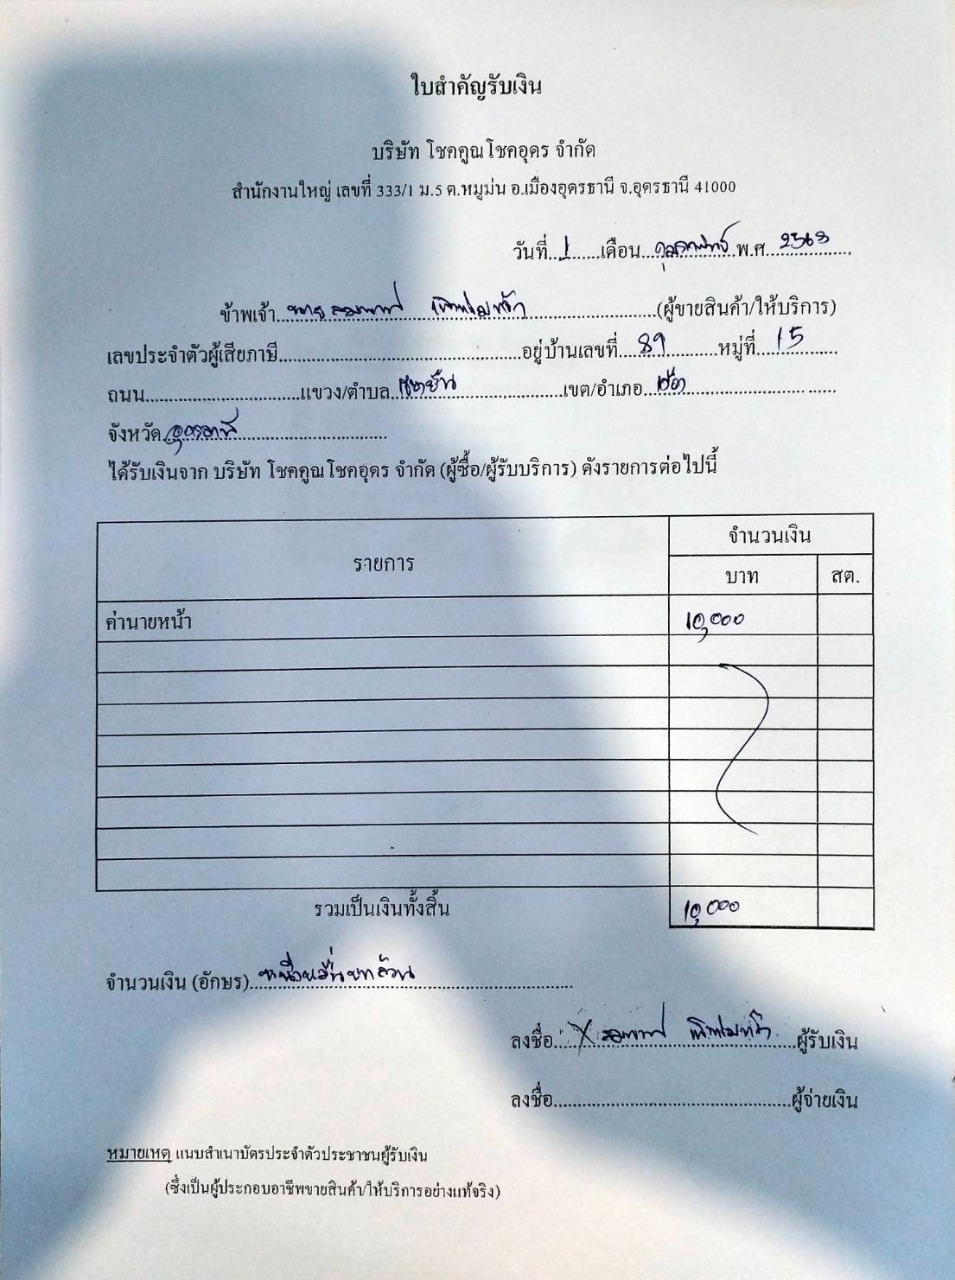 ใบสำคัญรับเงิน
บริษัท โชคคูณโชคอุดร จำกัด
สำนักงานใหญ่ เลขที่ 333/1 ม.5 ต.หมูม่น อ.เมืองอุดรธานี จ.อุดรธานี 41000
วันที่ 1 เดือน กุมภาพันธ์ พ.ศ. 2563
ข้าพเจ้า นาย (ผู้ขายสินค้า/ให้บริการ)
เลขประจำตัวผู้เสียภาษี อยู่บ้านเลขที่ 89 หมู่ที่ 15
ถนน แขวง/ตำบล เขต/อำเภอ
จังหวัด อุดรธานี
ได้รับเงินจาก บริษัท โชคคูณโชคอุดร จำกัด (ผู้ซื้อ/ผู้รับบริการ) ดังรายการต่อไปนี้
รายการ จำนวนเงิน
บาท สต.
ค่านายหน้า 10,000
รวมเป็นเงินทั้งสิ้น 10,000
จำนวนเงิน (อักษร) หนึ่งหมื่นบาทถ้วน
ลงชื่อ ผู้รับเงิน
ลงชื่อ ผู้จ่ายเงิน
หมายเหตุ แนบสำเนาบัตรประจำตัวประชาชนผู้รับเงิน
(ซึ่งเป็นผู้ประกอบอาชีพขายสินค้า/ให้บริการอย่างแท้จริง)